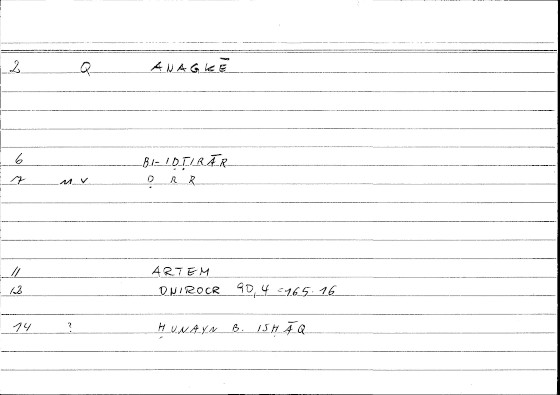 2 Q ANAGKĒ
6 BI-IḌṬIRĀR
7 M V Ḍ R R
11 ARTEM
13 ONIROCR 90,4 = 165.16
14 ? ḤUNAYN B. ISḤĀQ